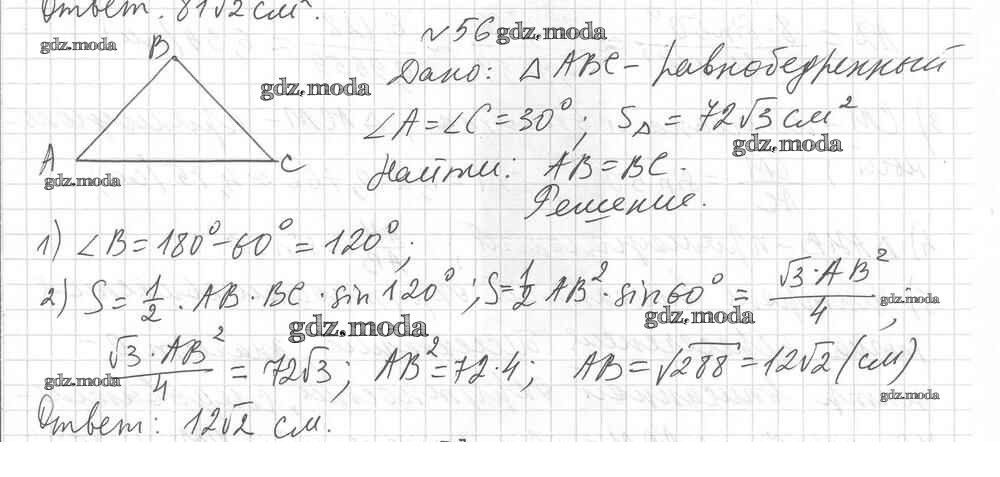 Ответ. 81√2 см².
gdz.moda
№56 gdz.moda
B
Дано: △ABC – равнобедренный
gdz.moda
∠A = ∠C = 30°; S△ = 72√3 см²
gdz.moda
A C
gdz.moda
Найти: AB = BC.
Решение.
1) ∠B = 180° – 60° = 120°;
2) S = 1/2 · AB · BC · sin 120°; S = 1/2 AB² · sin 60° = √3 · AB²/4;
gdz.moda
gdz.moda gdz.moda
√3 · AB²/4 = 72√3; AB² = 72 · 4; AB = √288 = 12√2 (см)
gdz.moda gdz.moda
Ответ: 12√2 см.